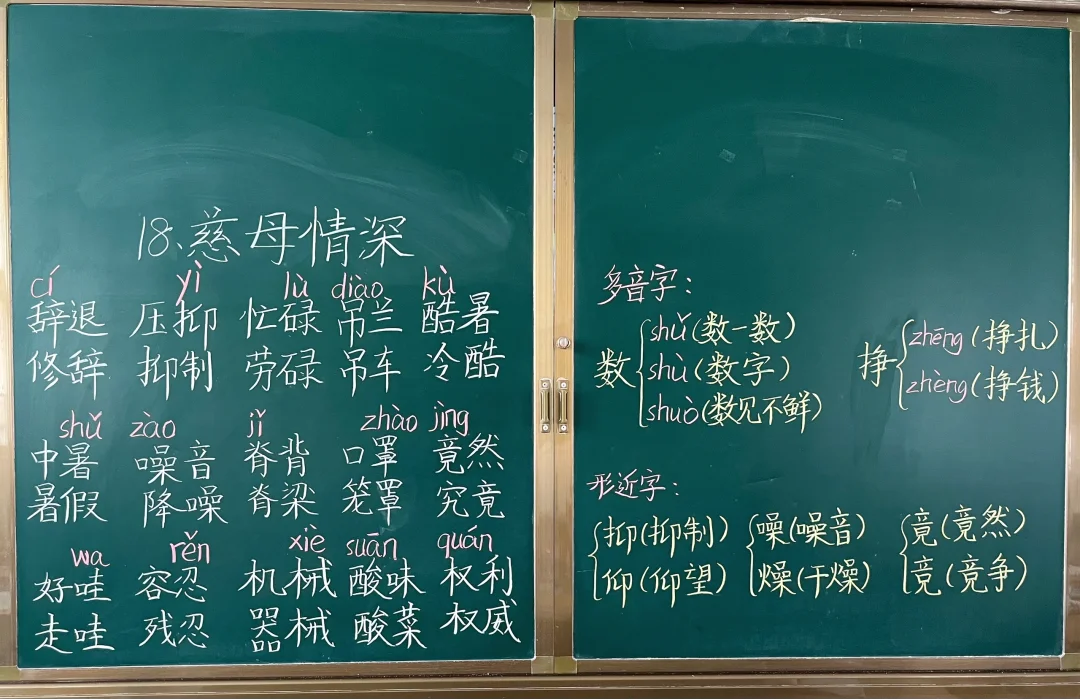 18.慈母情深
cí yì lù diào kù
辞退 压抑 忙碌 吊兰 酷暑
修辞 抑制 劳碌 吊车 冷酷
shǔ zào jǐ zhào jìng
中暑 噪音 脊背 口罩 竟然
暑假 降噪 脊梁 笼罩 究竟
wa rěn xiè suān quán
好哇 容忍 机械 酸味 权利
走哇 残忍 器械 酸菜 权威
多音字:
数 shǔ(数一数)
shù(数字)
shuò(数见不鲜)
挣 zhēng(挣扎)
zhèng(挣钱)
形近字:
抑(抑制) 噪(噪音) 竟(竟然)
仰(仰望) 燥(干燥) 竞(竞争)